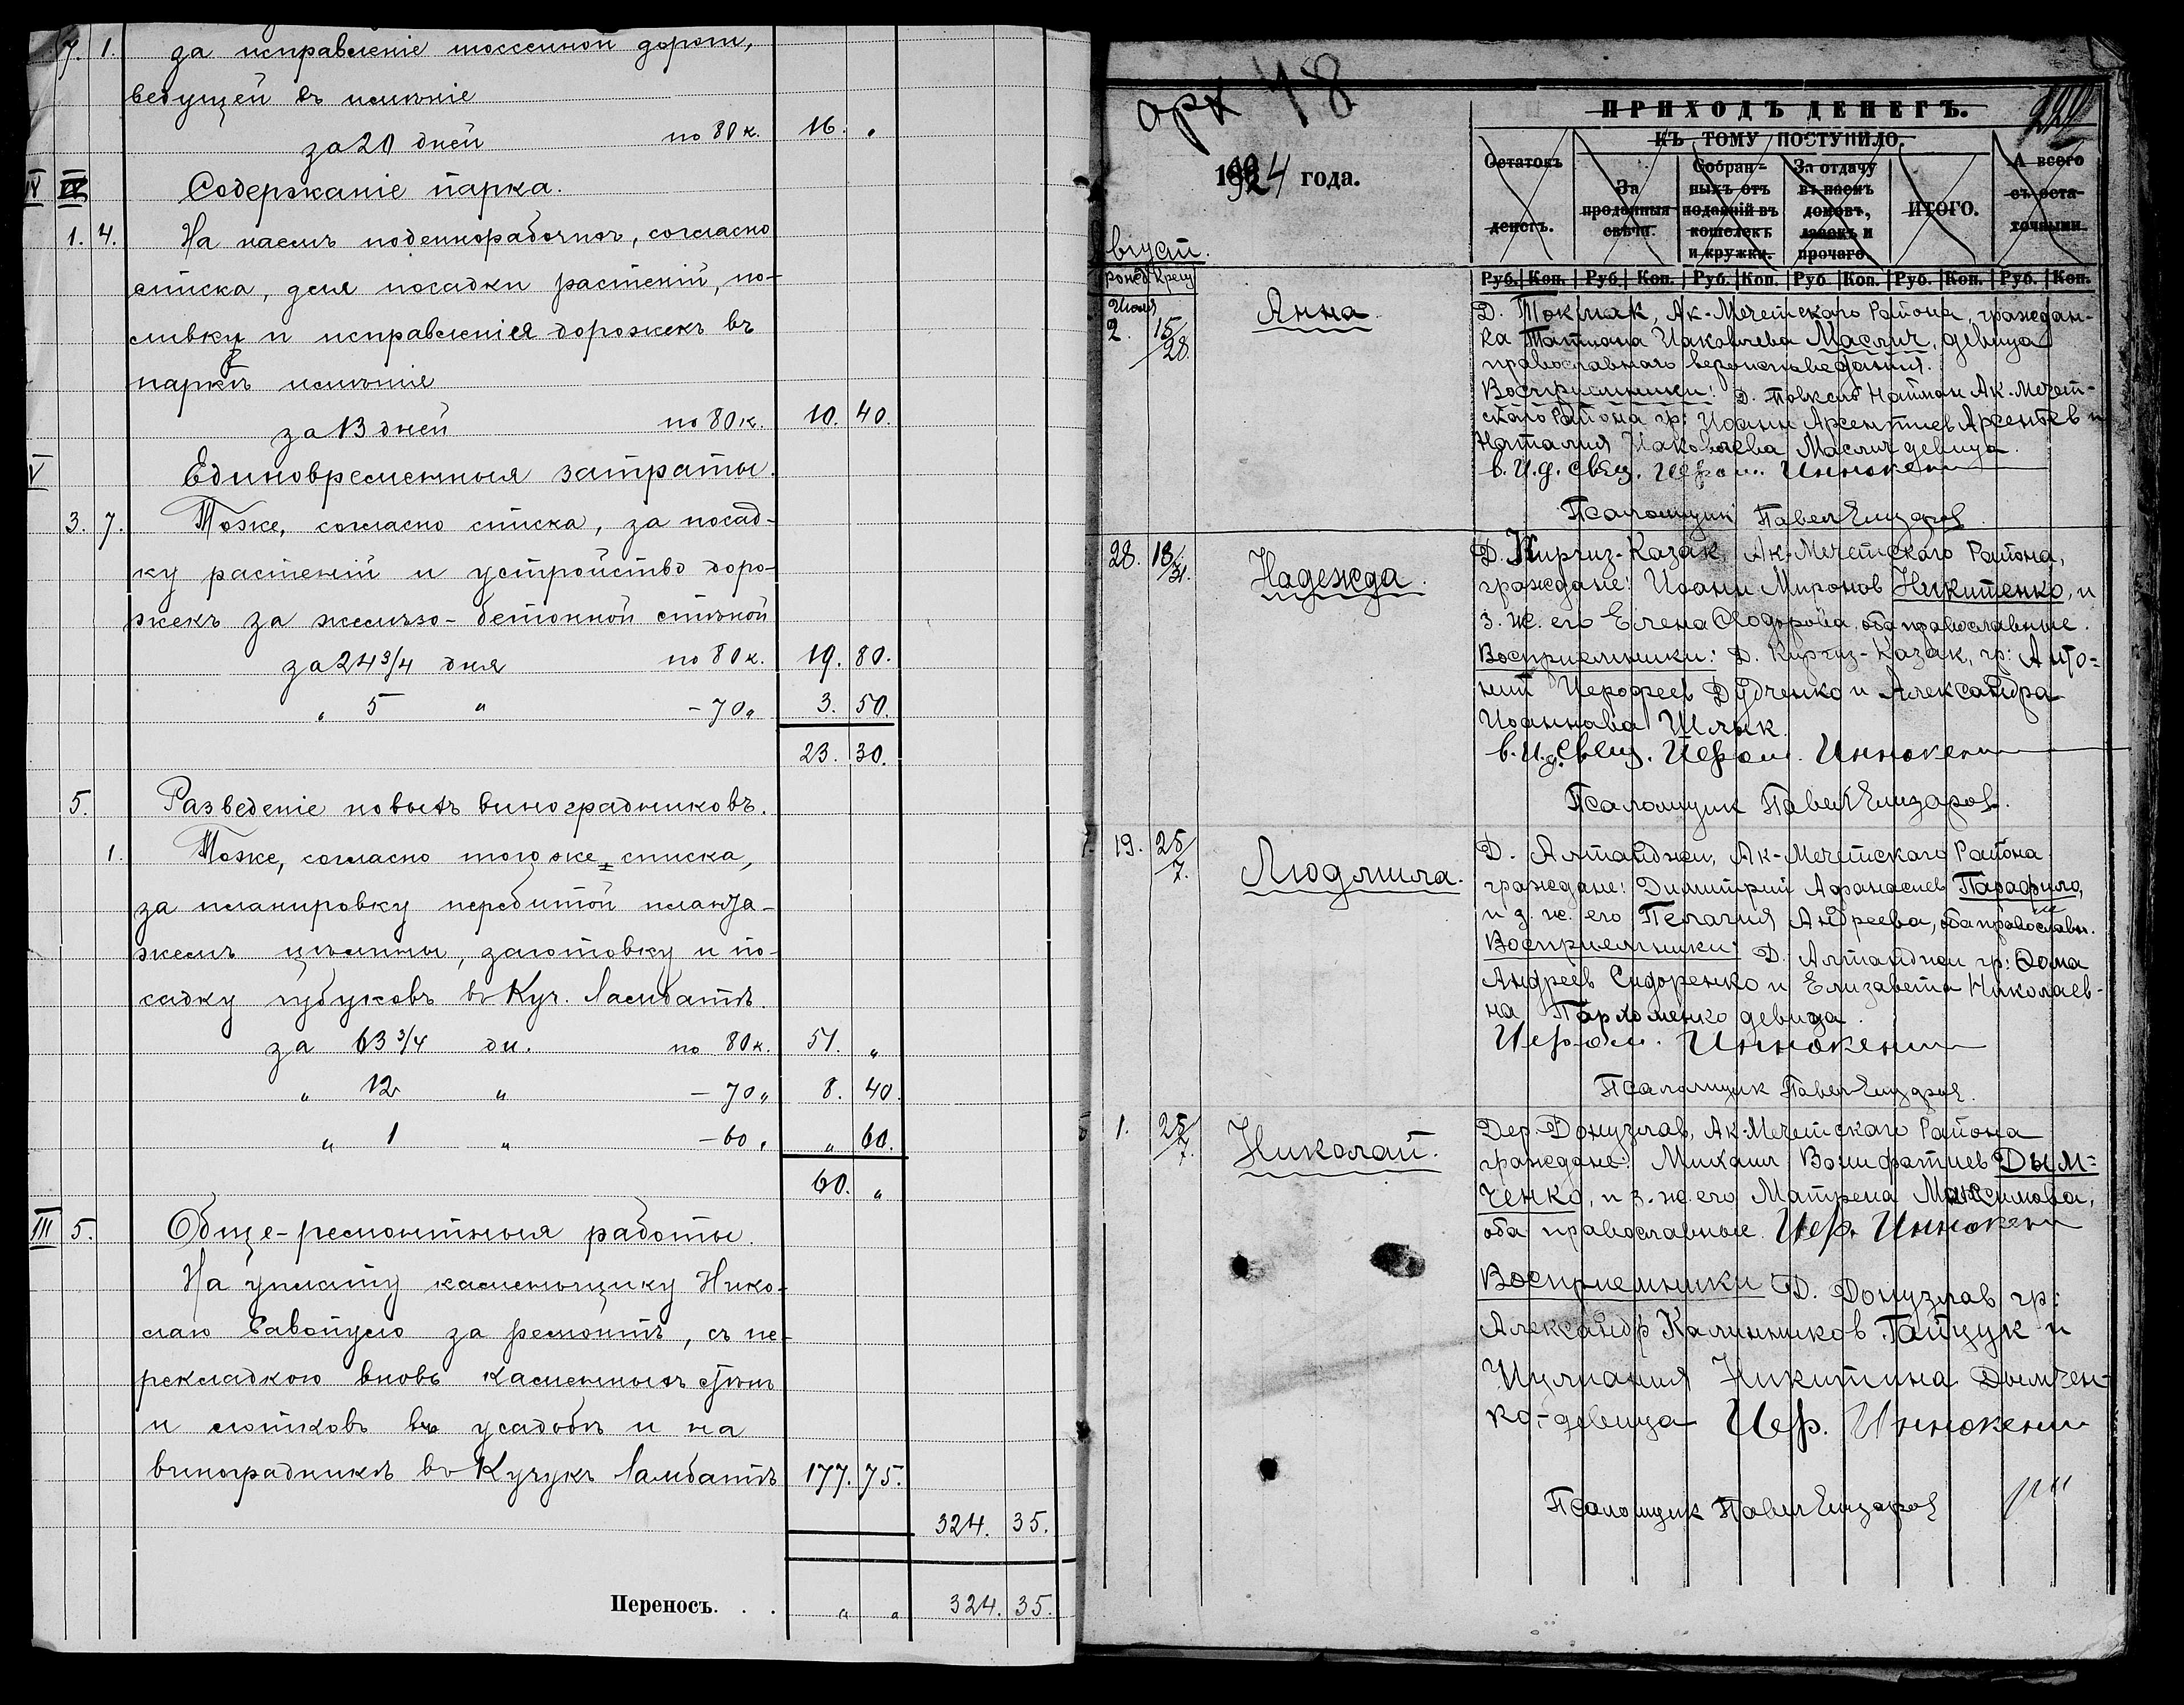 7. 1. за исправленіе шоссейной дороги,
ведущей въ имѣніе
за 20 дней по 80 к. 16. „
IV Содержаніе парка.
1. 4. На наемъ поденнорабочихъ, согласно
списка, для посадки растеній, по-
ливку и исправленія дорожекъ въ
паркѣ имѣнія
за 13 дней по 80 к. 10. 40.
V Единовременныя затраты.
3. 7. Тоже, согласно списка, за посад-
ку растеній и устройство доро-
жекъ за желѣзо-бетонной стѣной
за 24 3/4 дня по 80 к. 19. 80.
„ 5 „ - 70 „ 3. 50.
23. 30.
5. Разведеніе новыхъ виноградниковъ.
1. Тоже, согласно того же списка,
за планировку перебитой планта-
жемъ цѣлины, заготовку и по-
садку чубуковъ въ Куч. Ламбатѣ.
за 63 3/4 дн. по 80 к. 51. „
„ 12 „ - 70 „ 8. 40.
„ 1 „ - 60 „ „ 60.
60. „
III 5. Обще-ремонтныя работы.
На уплату каменьщику Нико-
лаю за ремонтъ, съ пе-
рекладкою вновь каменныхъ стѣнъ
и лотковъ въ усадьбѣ и на
виноградникѣ въ Кучукъ Ламбатѣ 177. 75.
324. 35.
Переносъ. . . „ „ 324. 35.
арк 18
ПРИХОДЪ ДЕНЕГЪ.
КЪ ТОМУ ПОСТУПИЛО.
1924 года.
Остатокъ денегъ.
За проданныя свѣчи.
Собран-ныхъ отъ подаяній въ кошелекъ и кружки.
За отдачу въ наемъ домовъ, лавокъ и прочаго.
ИТОГО.
А всего съ оста-точными.
вгуст.
рожд Крещ
Руб. Коп. Руб. Коп. Руб. Коп. Руб. Коп. Руб. Коп. Руб. Коп.
Июля
2. 15/28. Анна
Д. Токмак, Ак-Мечетскаго Района, граждан-
ка Татиана Иаковлева Маслич, девица
православнаго вероисповедания.
Восприемники: Д. Найман Ак-Мечет-
скаго Района гр: Иоанн Арсентиев Арсентьев и
Наталия Иаковлева Маслич девица.
в. И. д. свящ. Иером. Иннокени
Псаломщик Павел Елизаров
28. 18/31. Надежда.
Д. Киргиз-Казак, Ак-Мечетскаго Района,
граждане: Иоанн Миронов Никитенко, и
з. ж. его Елена Ѳеодорова оба православные.
Восприемники: Д. Киргиз-Казак, гр: Анто-
ний Иерофеев Дудченко и Александра
Иоаннова Шлык.
в. И. д. Свящ. Иером. Иннокени
Псаломщик Павел Елизаров.
19. 25/7. Людмила.
Д. Алтанджи, Ак-Мечетскаго Района
граждане: Димитрий Афанасиев Парафило,
и з. ж. его Пелагия Андреева, оба православн.
Восприемники: Д. Алтанджи гр: Ѳома
Андреев Сидоренко и Елизавета Николаев-
на Пархоменко девица.
Иером. Иннокени
Псаломщик Павел Елизаров.
1. 25/7. Николай.
Дер. Донузлав, Ак-Мечетскаго Района
граждане: Михаил Вонифатиев Дым-
ченко, и з. ж. его Матрена Максимова,
оба православные. Иер. Иннокени
Восприемники Д. Донузлав гр:
Александр Калинников Гайцук и
Иулиания Никитина Дымчен-
ко-девица Иер. Иннокени
Псаломщик Павел Елизаров